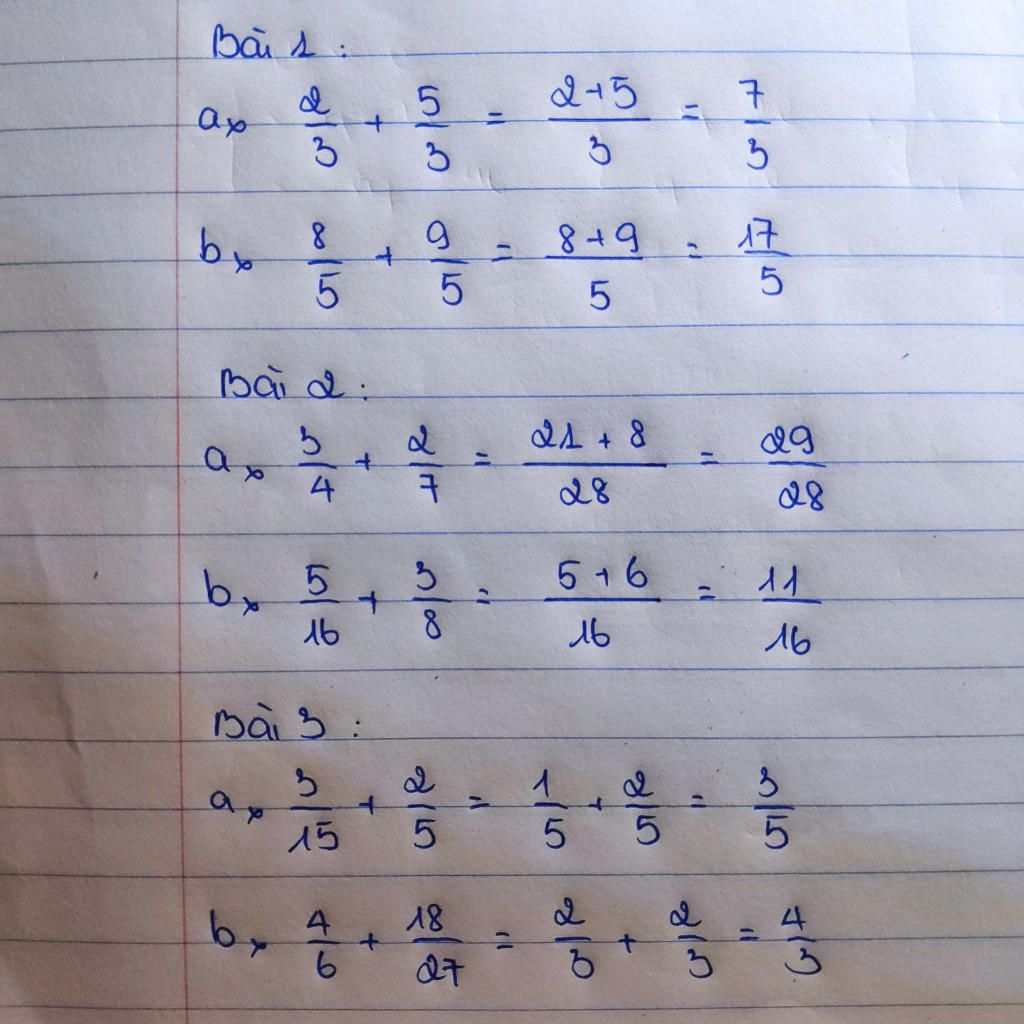 Bài 1 :
a, 2/3 + 5/3 = (2+5)/3 = 7/3
b, 8/5 + 9/5 = (8+9)/5 = 17/5
Bài 2 :
a, 3/4 + 2/7 = (21 + 8)/28 = 29/28
b, 5/16 + 3/8 = (5+6)/16 = 11/16
Bài 3 :
a, 3/15 + 2/5 = 1/5 + 2/5 = 3/5
b, 4/6 + 18/27 = 2/3 + 2/3 = 4/3